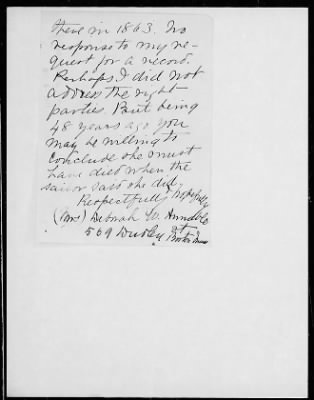 there in 1863. No
response to my re-
quest for a record.
Perhaps I did not
address the right
parties. But being
48 years ago you
may be willing to
conclude she must
have died when the
sailor said she did.
Respectfully hopefully
(Mrs) Deborah W.
569 Dudley St
Boston Mass